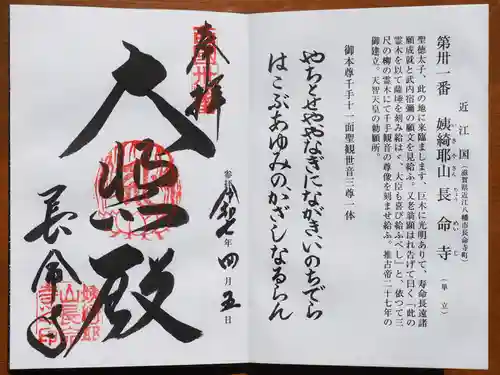 第卅一番
近江国(滋賀県近江八幡市長命寺町)
姨綺耶山長命寺(単立)
きやさん ちょうめいじ
聖徳太子、此の地に来臨まします、巨木に光明ありて、寿命長遠諸
願成就と武内宿彌の願文を見給ふ。又老翁顕はれ告げて曰く「此の
霊木を以て薩埵を刻み給はゞ、大臣も喜び給ふべし」と、依つて三
尺の柳の霊木にて千手観音の尊像を刻ませ給ふ。推古帝二十七年の
御建立。天智天皇の勅願所。
御本尊千手十一面聖観世音三尊一体
やちとせややなぎにながきいのちでら
はこぶあゆみのかざしなるらん
奉拝
大悲殿
長命寺
参拝 令和七年四月五日